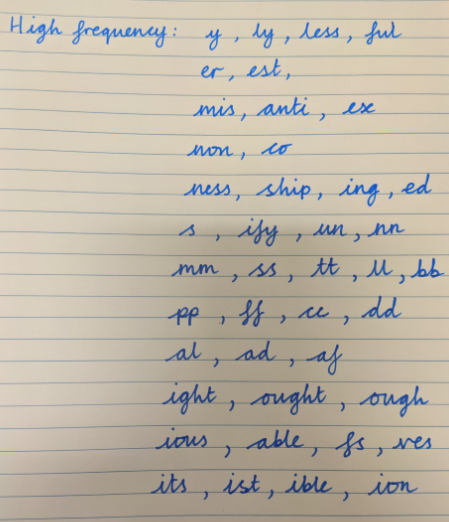 High frequency: y, ly, less, ful
er, est,
mis, anti, ex
non, co
ness, ship, ing, ed
s, ify, un, nn
mm, ss, tt, ll, bb
pp, ff, cc, dd
al, ad, af
ight, ought, ough
ious, able, fs, ves
its, ist, ible, ion